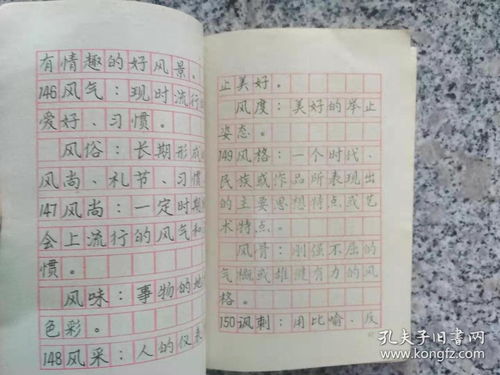 有情趣的好风景。
146风气：现时流行
爱好、习惯。
风俗：长期形成
风尚、礼节、习惯
147风尚：一定时期
会上流行的风气和
惯。
风味：事物的地
色彩。
148风采：人的仪表
止美好。
风度：美好的举止
姿态。
149风格：一个时代、
民族或作品所表现出
的主要思想特点或艺
术特点。
风骨：刚强不屈的
气概或雄健有力的风
格。
150讽刺：用比喻、反
孔夫子旧书网
www.kongfz.com